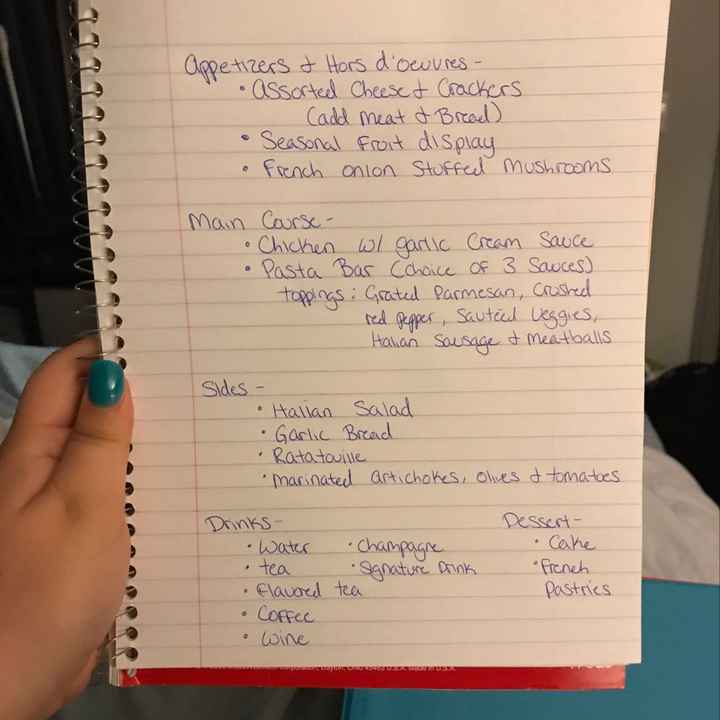 Appetizers & Hors d'oeuvres -
• Assorted Cheese & Crackers
(add meat & Bread)
• Seasonal Fruit display
• French onion Stuffed Mushrooms
Main Course -
• Chicken w/ garlic Cream Sauce
• Pasta Bar (choice of 3 Sauces)
toppings: Grated Parmesan, Crushed
red pepper, Sautéed Veggies,
Italian Sausage & meatballs
Sides -
• Italian Salad
• Garlic Bread
• Ratatouille
• marinated artichokes, olives & tomatoes
Drinks -
• Water
• tea
• flavored tea
• Coffee
• Wine
• Champagne
• Signature Drink
Dessert -
• Cake
• French
Pastries